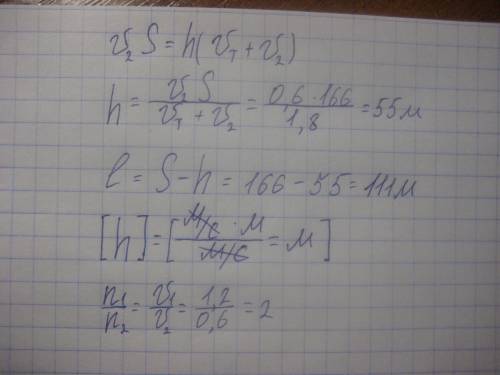 v₂ S = h( v₁ + v₂)
h = v₂ S / v₁ + v₂ = 0,6 · 166 / 1,8 = 55м
l = S - h = 166 - 55 = 111м
[h] = [ м/с · м / м/с = м ]
n₁/n₂ = v₁/v₂ = 1,2/0,6 = 2